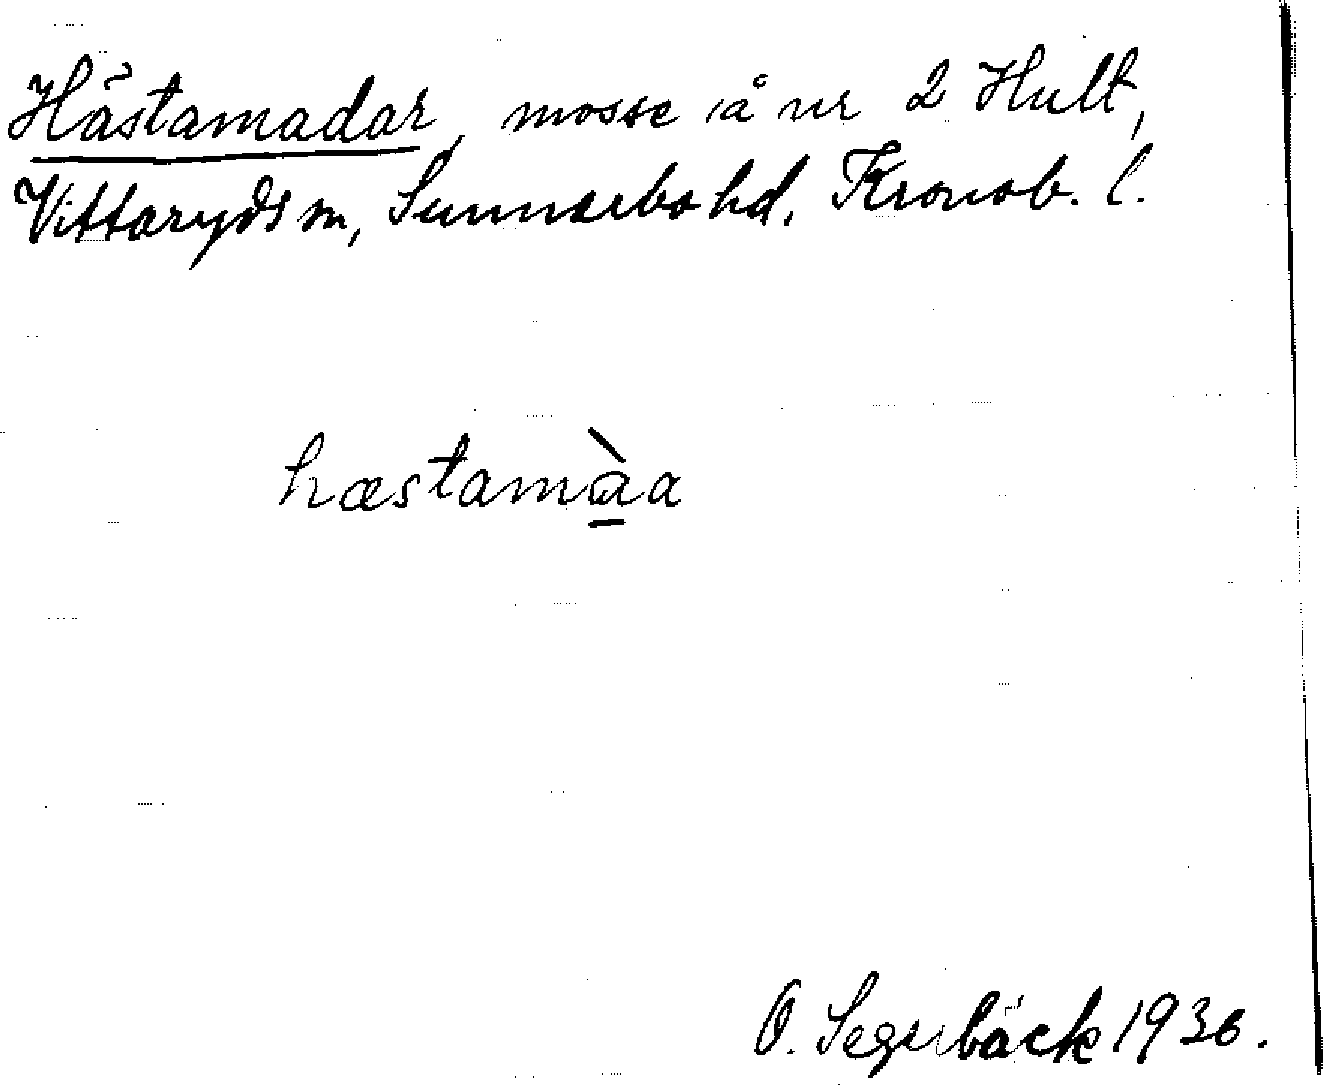 Hästamadar, mosse å nr 2 Hult,
Vittaryds sn, Sunnerbo hd, Kronob. l.
hæstamàa
O. Segerbäck 1936.